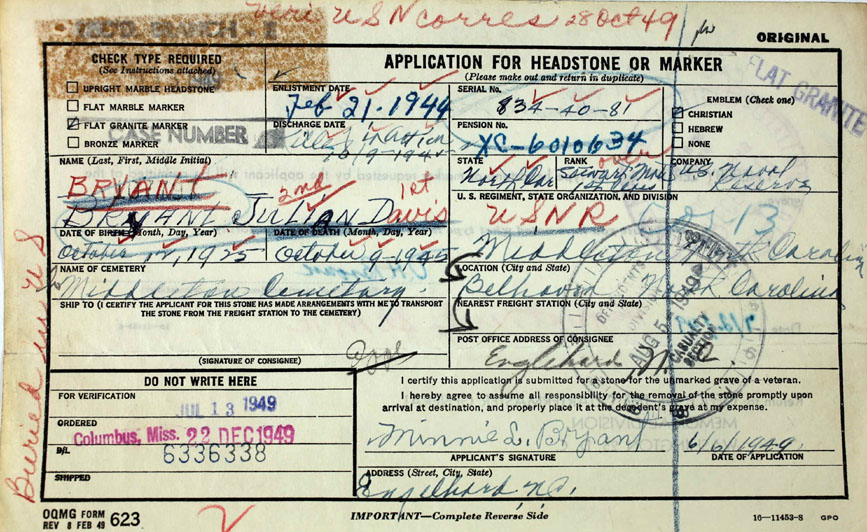 Veri USN Corres 28 Oct 49
ORIGINAL
CHECK TYPE REQUIRED
(See Instructions attached)
UPRIGHT MARBLE HEADSTONE
FLAT MARBLE MARKER
FLAT GRANITE MARKER
BRONZE MARKER
CASE NUMBER
APPLICATION FOR HEADSTONE OR MARKER
(Please make out and return in duplicate)
ENLISTMENT DATE
Feb 21-1944
DISCHARGE DATE
SERIAL No.
834-40-81
PENSION No.
XC-6010634
EMBLEM (Check one)
CHRISTIAN
HEBREW
NONE
FLAT GRANITE
NAME (Last, First, Middle Initial)
BRYANT
2nd 1st
BRYANT JULIAN Davis
STATE
North Car
RANK
over
Steward Mate
1st Class
COMPANY
U.S. Naval
Reserve
U. S. REGIMENT, STATE ORGANIZATION, AND DIVISION
USNR
DATE OF BIRTH (Month, Day, Year)
October 12, 1925
DATE OF DEATH (Month, Day, Year)
October 9-1945
Middleton North Carolina
NAME OF CEMETERY
Middleton Cemetary.
LOCATION (City and State)
Belhaven North Carolina
SHIP TO (I CERTIFY THE APPLICANT FOR THIS STONE HAS MADE ARRANGEMENTS WITH ME TO TRANSPORT
THE STONE FROM THE FREIGHT STATION TO THE CEMETERY)
NEAREST FREIGHT STATION (City and State)
POST OFFICE ADDRESS OF CONSIGNEE
Englehard, N.C.
(SIGNATURE OF CONSIGNEE)
AUG 5 1949
CASUALTY
SECTION
Buried in US
DO NOT WRITE HERE
FOR VERIFICATION
JUL 13 1949
ORDERED
Columbus, Miss. 22 DEC 1949
B/L
6336338
SHIPPED
I certify this application is submitted for a stone for the unmarked grave of a veteran.
I hereby agree to assume all responsibility for the removal of the stone promptly upon
arrival at destination, and properly place it at the decedent's grave at my expense.
Minnie L. Bryant 6/6/1949
APPLICANT'S SIGNATURE
DATE OF APPLICATION
ADDRESS (Street, City, State)
Engelhard N.C.
OQMG FORM
REV 8 FEB 49 623
IMPORTANT—Complete Reverse Side
16—11453-8 GPO